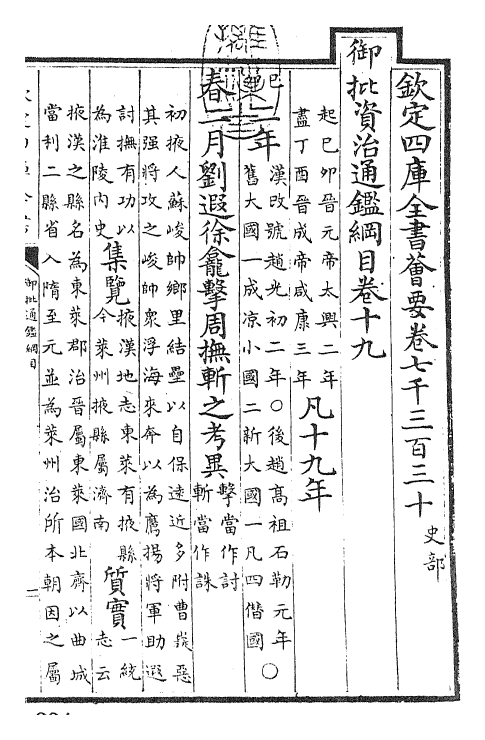 欽定四庫全書薈要卷七千三百三十 史部
御批資治通鑑綱目卷十九
起巳夘晉元帝太興二年
盡丁酉晉成帝咸康三年
凡十九年
二年
漢改號趙光初二年○後趙髙祖石勒元年○
舊大國一成凉小國二新大國一凡四僭國
春二月劉遐徐龕擊周撫斬之考異
擊當作討
斬當作誅
初掖人蘇峻帥鄉里結壘以自保逺近多附曹嶷惡
其强將攻之峻帥衆浮海來奔以為鷹揚將軍助遐
討撫有功以
為淮陵内史
集覽
掖漢地志東萊有掖縣
今萊州掖縣屬濟南
質實
一統
志云
掖漢之縣名為東萊郡治晉屬東萊國北齊以曲城
當利二縣省入隋至元並為萊州治所本朝因之屬
御批通鑑綱目
一